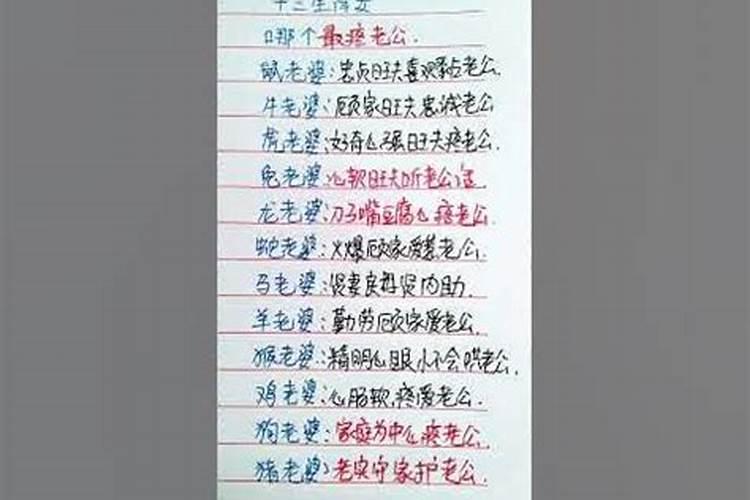 十二生肖女
哪个最疼老公.
鼠老婆:忠贞旺夫喜欢黏老公.
牛老婆:顾家旺夫忠诚老公
虎老婆:好奇心强旺夫疼老公.
兔老婆:心软旺夫听老公话
龙老婆:刀子嘴豆腐心疼老公.
蛇老婆:火爆顾家爱慕老公.
马老婆:贤妻良母贤内助.
羊老婆:勤劳顾家爱老公.
猴老婆:精明心眼小不会哄老公.
鸡老婆:心肠软.疼爱老公.
狗老婆:家庭为中心疼老公.
猪老婆:老实守家护老公.